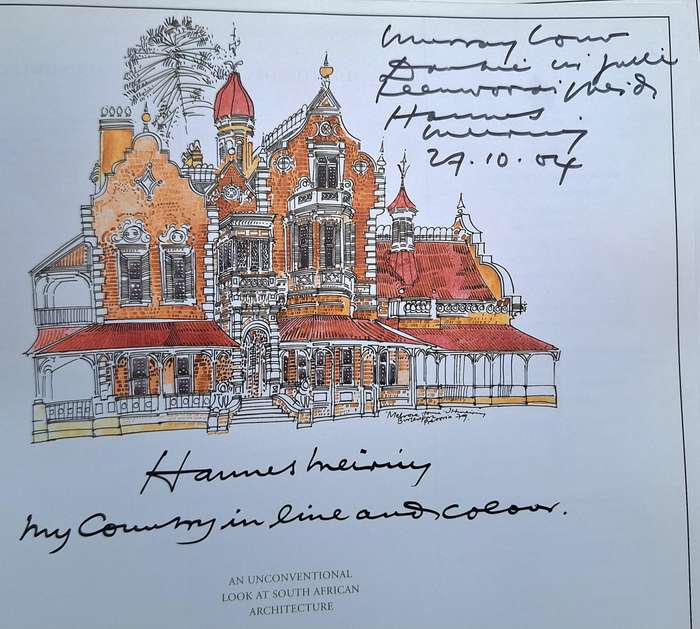 Murray Louw
Dankie vir julle
Teenwoordigheid
Hannes
Meiring
27.10.04
Melrose House
Pretoria 79
Hannes Meiring
My Country in line and colour.
AN UNCONVENTIONAL
LOOK AT SOUTH AFRICAN
ARCHITECTURE